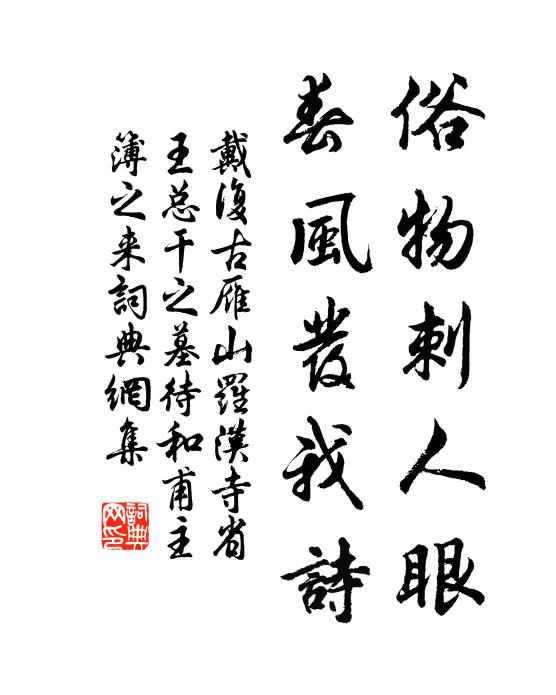 俗物刺人眼
春風發我詩
戴復古雁山羅漢寺省
王总干之墓待和甫主
簿之来詞典網集
詞典
网印